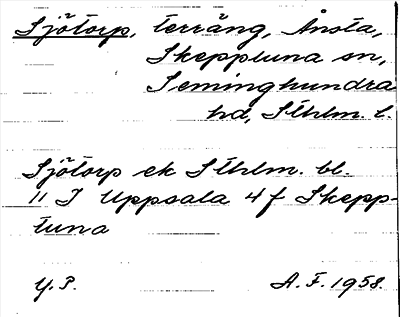 Sjötorp, terräng, Ånsta,
Skepptuna sn,
Seminghundra
hd, Sthlm. l.
Sjötorp ek Sthlm. bl.
11 I Uppsala 4 f Skepp-
tuna
Y. P. A. F. 1958.